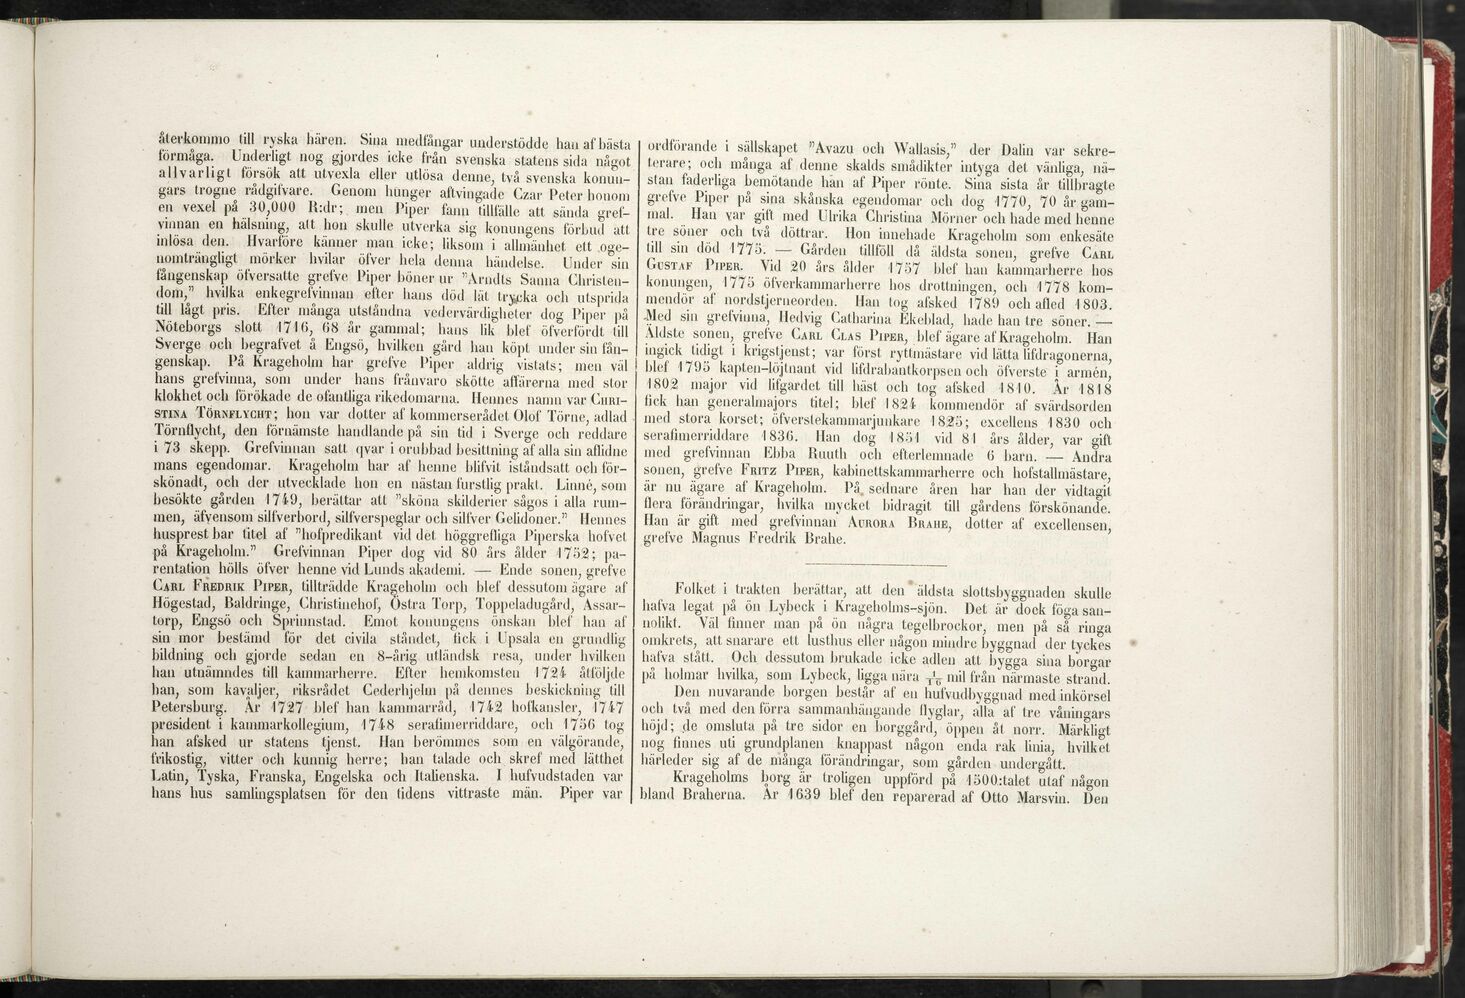 återkommo till ryska hären. Sina medfångar understödde han af bästa
förmåga. Underligt nog gjordes icke från svenska statens sida något
allvarligt försök att utvexla eller utlösa denne, två svenska konun-
gars trogne rådgifvare. Genom hunger aftvingade Czar Peter honom
en vexel på 30,000 R:dr; men Piper fann tillfälle att sända gref-
vinnan en hälsning, att hon skulle utverka sig konungens förbud att
inlösa den. Hvarföre känner man icke; liksom i allmänhet ett oge-
nomträngligt mörker hvilar öfver hela denna händelse. Under sin
fångenskap öfversatte grefve Piper böner ur "Arndts Sanna Christen-
dom," hvilka enkegrefvinnan efter hans död lät trycka och utsprida
till lågt pris. Efter många utståndna vedervärdigheter dog Piper på
Nöteborgs slott 1716, 68 år gammal; hans lik blef öfverfördt till
Sverge och begrafvet å Engsö, hvilken gård han köpt under sin fån-
genskap. På Krageholm har grefve Piper aldrig vistats; men väl
hans grefvinna, som under hans frånvaro skötte affärerna med stor
klokhet och förökade de ofantliga rikedomarna. Hennes namn var Chri-
stina Törnflycht; hon var dotter af kommerserådet Olof Törne, adlad
Törnflycht, den förnämste handlande på sin tid i Sverge och reddare
i 73 skepp. Grefvinnan satt qvar i orubbad besittning af alla sin aflidne
mans egendomar. Krageholm har af henne blifvit iståndsatt och för-
skönadt, och der utvecklade hon en nästan furstlig prakt. Linné, som
besökte gården 1749, berättar att "sköna skilderier sågos i alla rum-
men, äfvensom silfverbord, silfverspeglar och silfver Gelidoner." Hennes
husprest bar titel af "hofpredikant vid det höggrefliga Piperska hofvet
på Krageholm." Grefvinnan Piper dog vid 80 års ålder 1752; pa-
rentation hölls öfver henne vid Lunds akademi. — Ende sonen, grefve
Carl Fredrik Piper, tillträdde Krageholm och blef dessutom ägare af
Högestad, Baldringe, Christinehof, Östra Torp, Toppeladugård, Assar-
torp, Engsö och Sprinnstad. Emot konungens önskan blef han af
sin mor bestämd för det civila ståndet, fick i Upsala en grundlig
bildning och gjorde sedan en 8-årig utländsk resa, under hvilken
han utnämndes till kammarherre. Efter hemkomsten 1724 åtföljde
han, som kavaljer, riksrådet Cederhjelm på dennes beskickning till
Petersburg. År 1727 blef han kammarråd, 1742 hofkansler, 1747
president i kammarkollegium, 1748 serafimerriddare, och 1756 tog
han afsked ur statens tjenst. Han berömmes som en välgörande,
frikostig, vitter och kunnig herre; han talade och skref med lätthet
Latin, Tyska, Franska, Engelska och Italienska. I hufvudstaden var
hans hus samlingsplatsen för den tidens vittraste män. Piper var
ordförande i sällskapet "Avazu och Wallasis," der Dalin var sekre-
terare; och många af denne skalds smådikter intyga det vänliga, nä-
stan faderliga bemötande han af Piper rönte. Sina sista år tillbragte
grefve Piper på sina skånska egendomar och dog 1770, 70 år gam-
mal. Han var gift med Ulrika Christina Mörner och hade med henne
tre söner och två döttrar. Hon innehade Krageholm som enkesäte
till sin död 1775. — Gården tillföll då äldsta sonen, grefve Carl
Gustaf Piper. Vid 20 års ålder 1757 blef han kammarherre hos
konungen, 1775 öfverkammarherre hos drottningen, och 1778 kom-
mendör af nordstjerneorden. Han tog afsked 1789 och afled 1803.
Med sin grefvinna, Hedvig Catharina Ekeblad, hade han tre söner. —
Äldste sonen, grefve Carl Clas Piper, blef ägare af Krageholm. Han
ingick tidigt i krigstjenst; var först ryttmästare vid lätta lifdragonerna,
blef 1795 kapten-löjtnant vid lifdrabantkorpsen och öfverste i armén,
1802 major vid lifgardet till häst och tog afsked 1810. År 1818
fick han generalmajors titel; blef 1824 kommendör af svärdsorden
med stora korset; öfverstekammarjunkare 1825; excellens 1830 och
serafimerriddare 1836. Han dog 1851 vid 81 års ålder, var gift
med grefvinnan Ebba Ruuth och efterlemnade 6 barn. — Andra
sonen, grefve Fritz Piper, kabinettskammarherre och hofstallmästare,
är nu ägare af Krageholm. På sednare åren har han der vidtagit
flera förändringar, hvilka mycket bidragit till gårdens förskönande.
Han är gift med grefvinnan Aurora Brahe, dotter af excellensen,
grefve Magnus Fredrik Brahe.
Folket i trakten berättar, att den äldsta slottsbyggnaden skulle
hafva legat på ön Lybeck i Krageholms-sjön. Det är dock föga san-
nolikt. Väl finner man på ön några tegelbrockor, men på så ringa
omkrets, att snarare ett lusthus eller någon mindre byggnad der tyckes
hafva stått. Och dessutom brukade icke adlen att bygga sina borgar
på holmar hvilka, som Lybeck, ligga nära 1/16 mil från närmaste strand.
Den nuvarande borgen består af en hufvudbyggnad med inkörsel
och två med den förra sammanhängande flyglar, alla af tre våningars
höjd; de omsluta på tre sidor en borggård, öppen åt norr. Märkligt
nog finnes uti grundplanen knappast någon enda rak linia, hvilket
härleder sig af de många förändringar, som gården undergått.
Krageholms borg är troligen uppförd på 1500:talet utaf någon
bland Braherna. År 1639 blef den reparerad af Otto Marsvin. Den